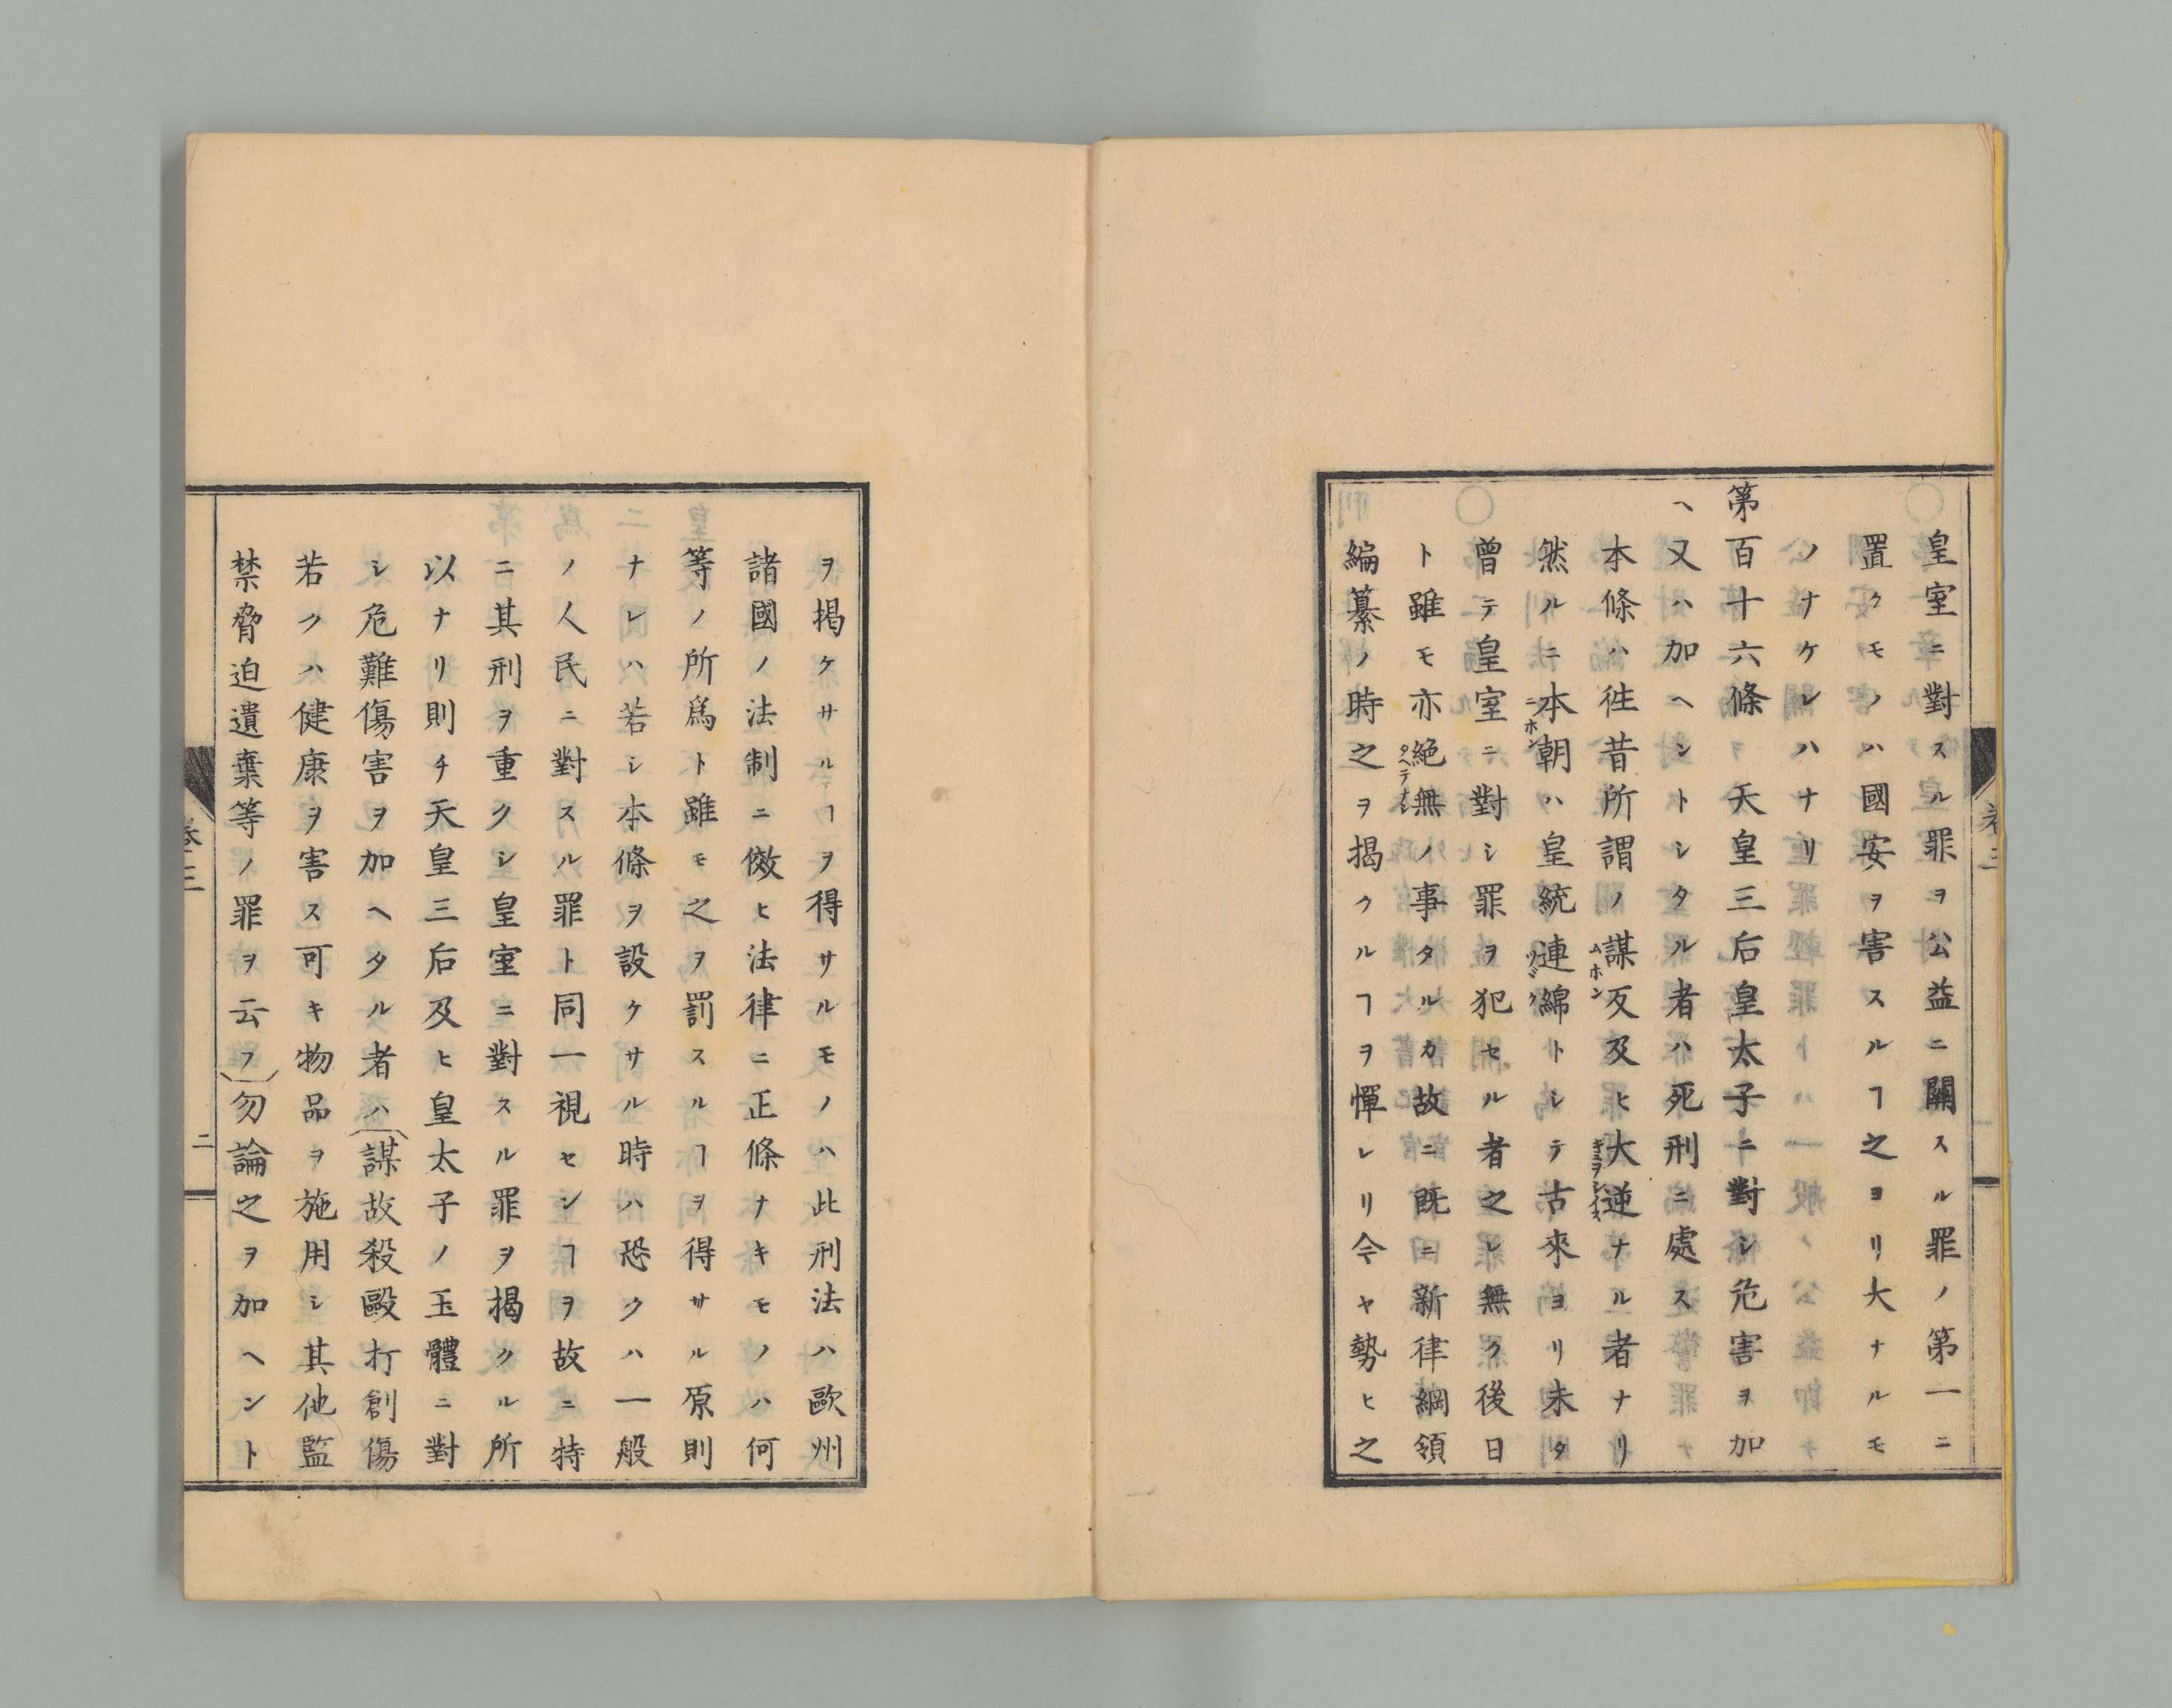 皇室ニ對スル罪ヲ公益ニ關スル罪ノ第一ニ
置クモノハ國安ヲ害スルヿ之ヨリ大ナルモ
ノナケレハナリ
第百十六條　天皇三后皇太子ニ對シ危害ヲ加
ヘ又ハ加ヘントシタル者ハ死刑ニ處ス
本條ハ徃昔所謂ノ謀反及ヒ大逆ナル者ナリ
然ルニ本朝ハ皇統連綿トシテ古來ヨリ未タ
曾テ皇室ニ對シ罪ヲ犯セル者之レ無ク後日
ト雖モ亦絶無ノ事タルカ故ニ既ニ新律綱領
編纂ノ時之ヲ揭クルヿヲ憚レリ今ヤ勢ヒ之
ヲ揭ケサルヿヲ得サルモノハ此刑法ハ歐州
諸國ノ法制ニ傚ヒ法律ニ正條ナキモノハ何
等ノ所爲ト雖モ之ヲ罰スルヿヲ得サル原則
ナレハ若シ本條ヲ設ケサル時ハ恐クハ一般
ノ人民ニ對スル罪ト同一視センヿヲ故ニ特
ニ其刑ヲ重クシ皇室ニ對スル罪ヲ揭クル所
以ナリ則チ天皇三后及ヒ皇太子ノ玉體ニ對
シ危難傷害ヲ加ヘタル者ハ（謀故殺毆打創傷
若クハ健康ヲ害ス可キ物品ヲ施用シ其他監
禁脅迫遺棄等ノ罪ヲ云フ）勿論之ヲ加ヘント
卷三
二